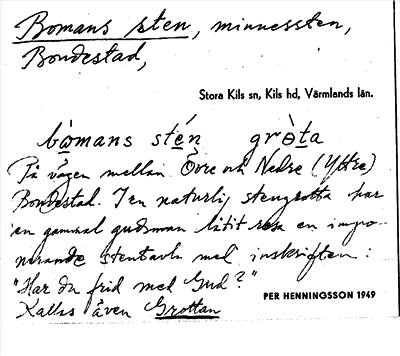 Bomans sten, minnessten,
Bondestad,
Stora Kils sn, Kils hd, Värmlands län.
bὼmans stén gròta
På vägen mellan Övre och Nedre (Yttre)
Bondestad. I en naturlig stengrotta har
en gammal gudsman låtit resa en impo-
nerande stentavla med inskriften:
"Har du frid med Gud?"
PER HENNINGSSON 1949
Kallas även Grottan